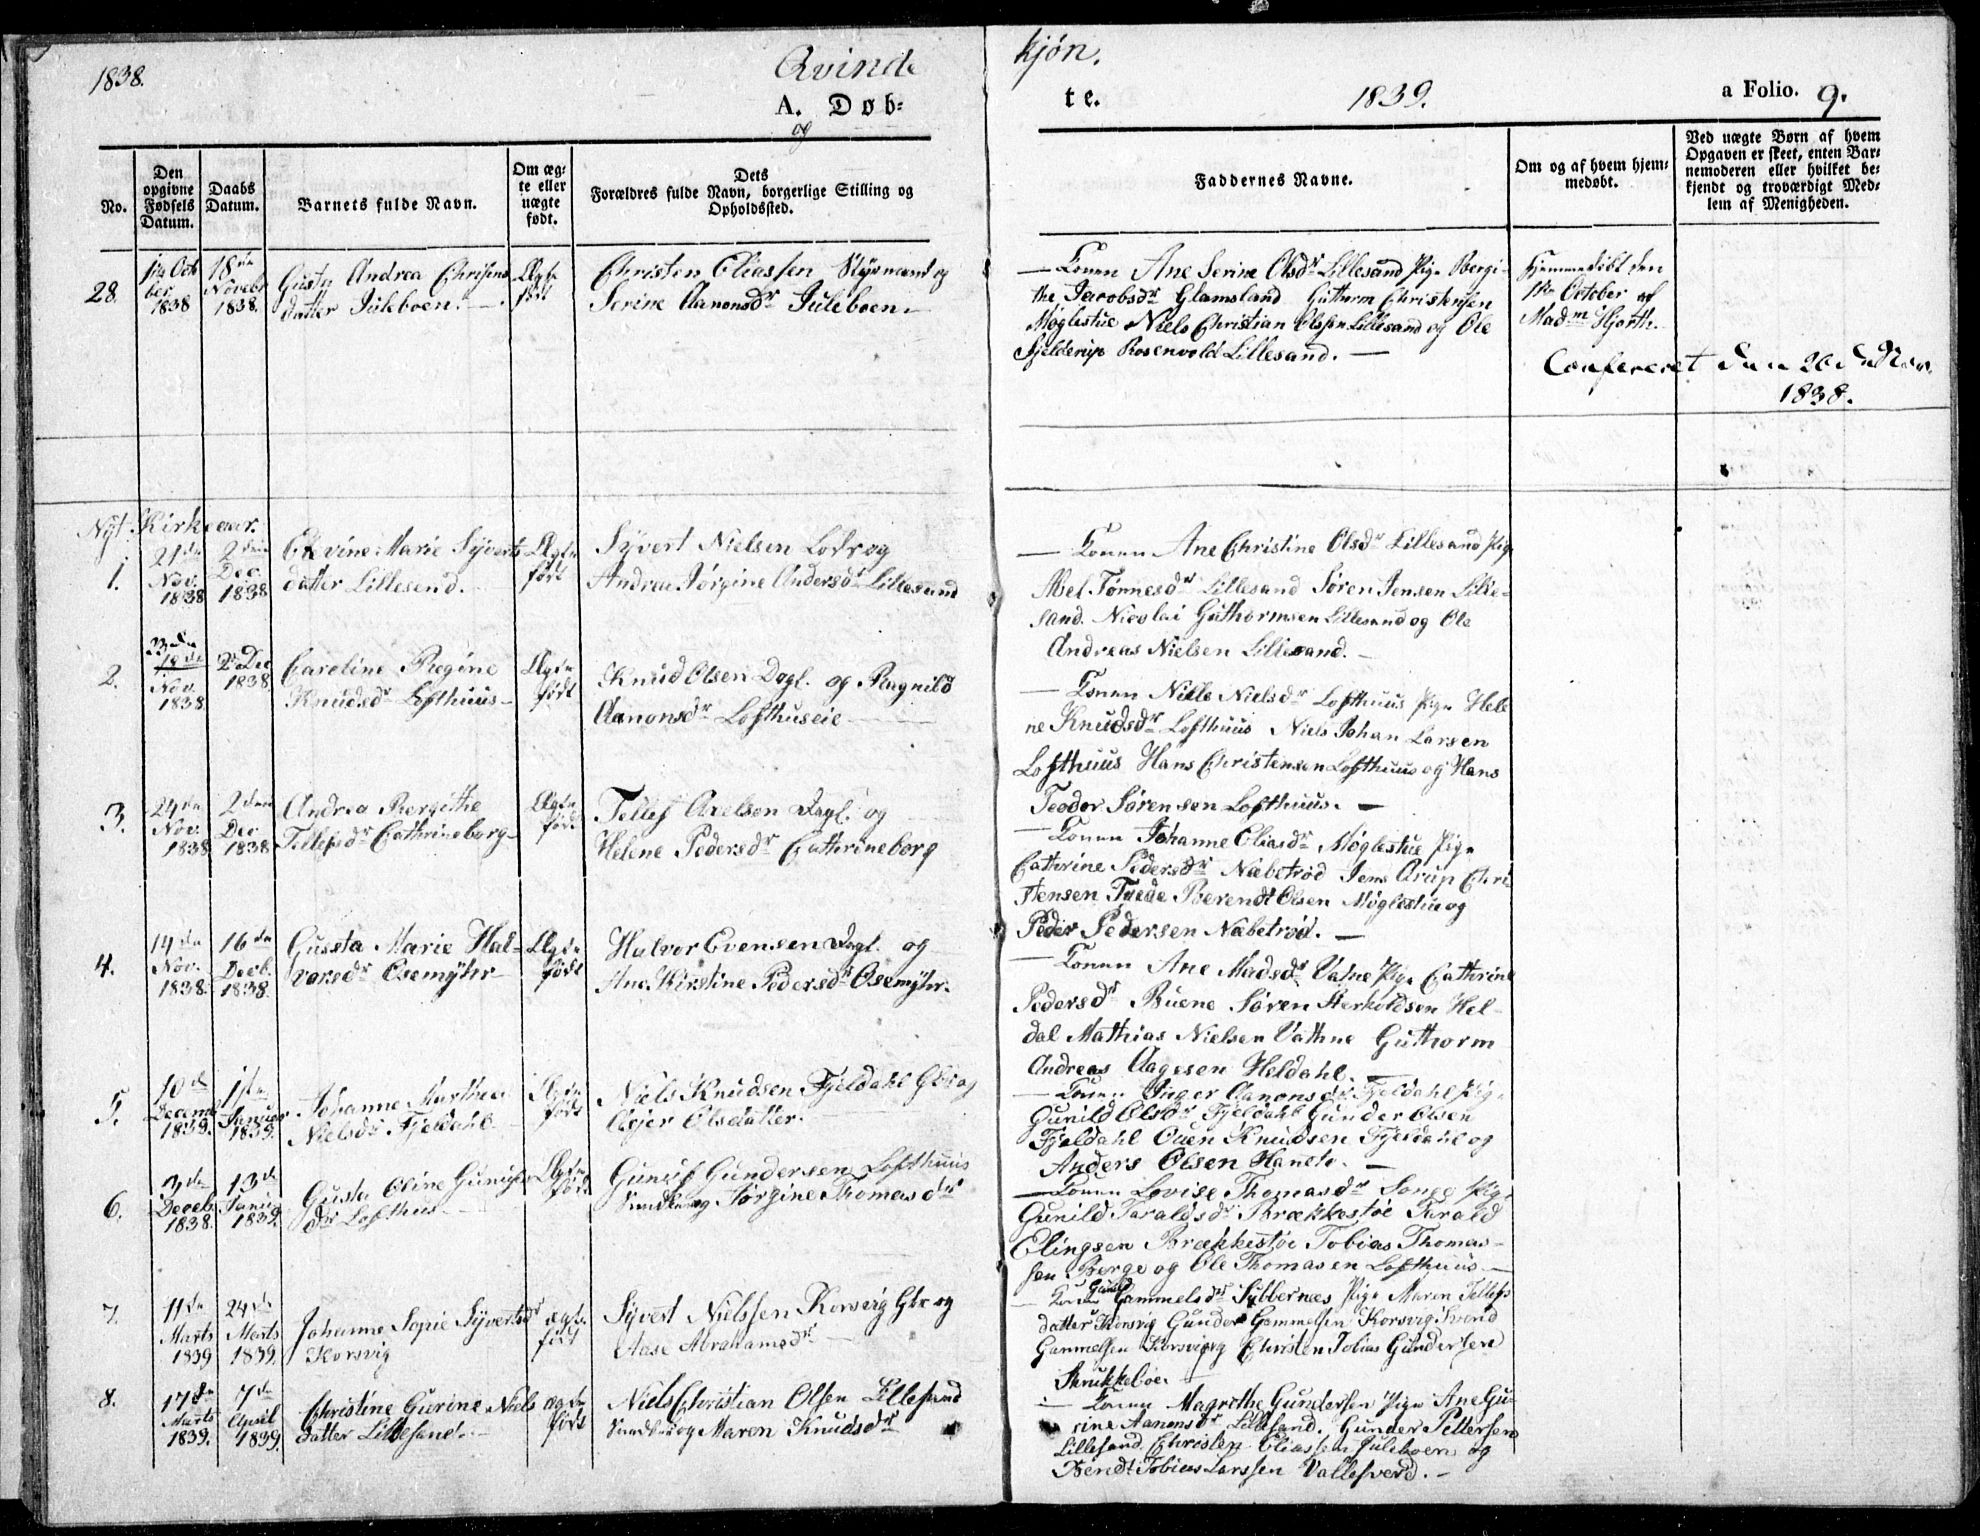 1838.
Qvinde
kjøn.
A. Døb=
te.
1839.
a Folio. 9.
og
No.
Den opgivne Fødsels Datum.
Daabs Datum.
Barnets fulde Navn.
Om æg=
te eller
uægte
født.
Dets
Forældres fulde Navn, borgerlige Stilling og
Opholdssted.
Faddernes Navne.
Om og af hvem hjem=
medøbt.
Ved uægte Børn af hvem
Opgaven er skeet, enten Bar=
nemoderen eller hvilket be=
kjendt og troværdigt Med=
lem af Menigheden.
28
1ste Octo
ber
1838
18de
Novebr
1838.
Gusta Andrea Chrisens
datter Juleboen.
Ægte
født
Christen Eliassen Styrmand og
Serine Aanonsdr Juleboen
— Konen Ane Serine Olsdr Lillesand Pige Bergi-
the Jacobsdr Glamsland Guttorm Christensen
Møglestue Niels Christian Olssen Lillesand og Ole
Fjelderup Rosenvold Lillesand. —
Hjemmedøbt den
1ste October af
Madm Hjorth.
Confereret den 26de Nov.
1838.
Nyt Kirkeaar.
1.
21de
Nov.
1838
2den
Dec.
1838
Elevine Marie Syverts
datter Lillesend.
Ægte
født
Syvert Nielsen Lods og
Andrea Jørgine Andersdr Lillesand
— Konen Ane Christine Olsdr Lillesand Pige
Abel Tønnesdr Lillesand Søren Jensen Lille-
sand. Nicolai Guthormsen Lillesand og Ole
Andreas Nielsen Lillesand. —
2.
23de
18de
Nov.
1838
2d Dec
1838.
Caroline Regine
Knudsdr Lofthuus
Ægte
født
Knud Olsen Dagl. og Ragnild
Aanonsdr Lofthuseie
— Konen Nille Nielsdr Lofthuus Pige Hele
ne Knudsdr Lofthuus Niels Johan Larsen
Lofthuus Hans Christensen Lofthuus og Hans
Teodor Sørensen Lofthuus. —
3.
24de
Nov.
1838
2den
Dec
1838
Andrea Bergithe
Tellefsdr Cathrineborg
Ægte
født
Tellef Axelsen Dagl. og
Helene Pedersdr Cathrineborg
— Konen Johanne Eliasdr Møglestue Pige
Cathrine Pedersdr Næbetrød Jens Arup Chri
stensen Tvede Berendt Olsen Møglestue og
Peder Pedersen Næbetrød. —
4.
14de
Nov.
1838.
16de
Decb.
1838.
Gussta Marie Hal-
vorsdr Osemyhr
Ægte
født
Halvor Evensen Dagl. og
Ane Kirstine Pedersdr Osemyhr.
— Konen Ane Madsdr Vatne Pige Cathrine
Pedersdr Buene Søren Sterkoldsen Hel-
dal Mathias Nielsen Vathne Guthorm
Andreas Aagesen Heldahl. —
5.
10de
Decemb
1839.
1ste
Januar
1839.
Johanne Marthea
Nielsdr Fjeldahl
Ægte
født
Niels Knudsen Fjeldahl Gbr og
Olsdatter.
— Konen Inger Aanonsdr Fjeldahl Pige
Gunild Olsdr Fjeldahl Gunder Olsen
Fjeldahl Ouen Knudsen Fjeldahl og
Anders Olsen Hanetv. —
6.
3de
Deceb.
1838.
13de
Januar
1839.
Gusta Oline Gunufs
dr Lofthus
Ægte
født
Gunuf Gundersen Lofthuus
og Jørgine Thomasdr
— Konen Lovise Thomasdr Songe Pige
Gunild Taraldsdr Brækkestøe Tarald
Elingsen Brækkestøe Tobias Thomas-
sen Berge og Ole Thomasen Lofthuus —
7.
11de
Marts
1839
24de
Marts
1839.
Johanne Sopie Syvertsdr
Korsvig
ægte
født
Syvert Nielssen Korsvig Gbr og
Aase Abrahamsdr
— Konen Gunild Gammelsdr Sybbernæs Pige Maren Tellefs
datter Korsvig Gunder Gammelsen Korsvig Svend
Gammelsen Korsvig og Christen Tobias Gundersen
Skrukkeboe.
8.
17de
Marts
1839.
7de
April
1839.
Christine Gurine Niels
datter Lillesand.
ægte
født
Niels Christian Olsen Lillesand
og Maren Knudsdr
— Konen Magrethe Gundersen Pige Ane Gu-
rine Aanonsdr Lillesand. Gunder Pettersen
Lillesand Christen Eliassen Juleboen og
Bendt Tobias Larssen Vallesverd. —